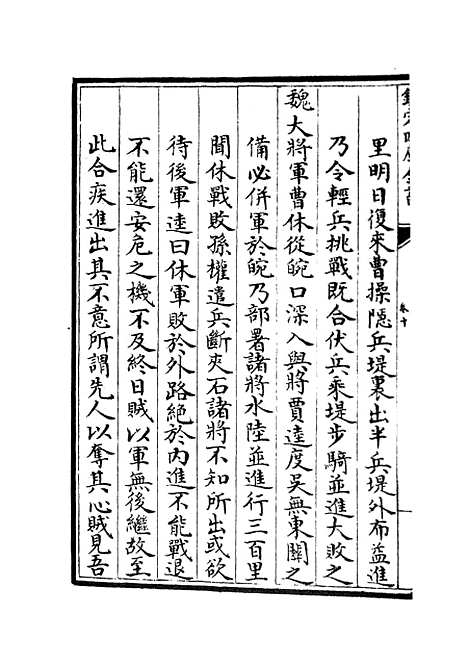 欽定四庫全書
卷十
里明日復來曹操隱兵堤裏出半兵堤外布益進
乃令輕兵挑戰既合伏兵乘堤步騎並進大敗之
魏大將軍曹休從皖口深入與將賈逵度吳無東關之
備必併軍於皖乃部署諸將水陸並進行三百里
間休戰敗孫權遣兵斷夾石諸將不知所出或欲
待後軍逵曰休軍敗於外路絕於內進不能戰退
不能還安危之機不及終日賊以軍無後繼故至
此合疾進出其不意所謂先人以奪其心賊見吾